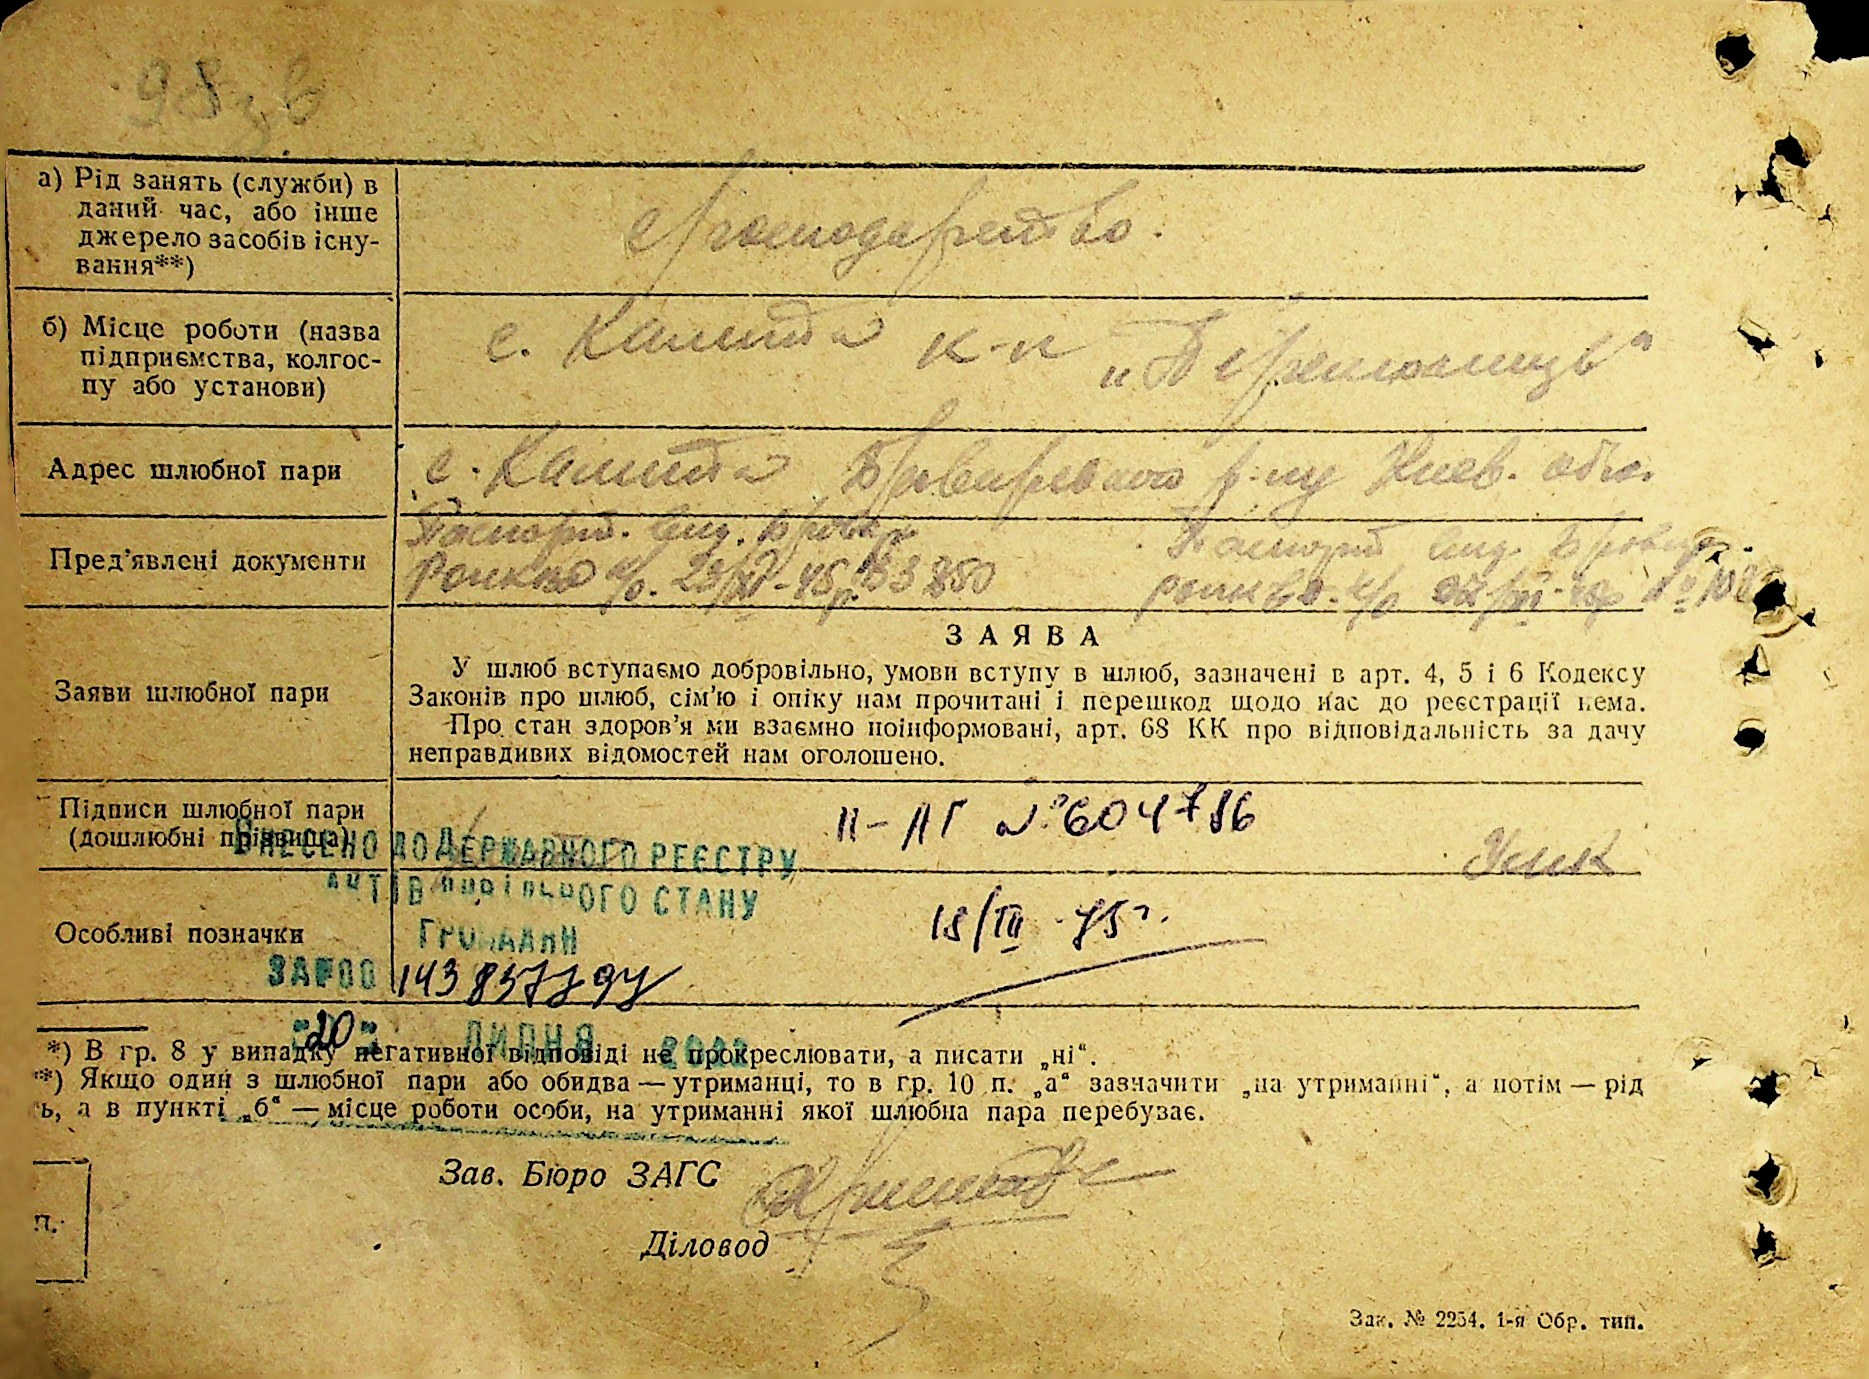 а) Рід занять (служби) в
даний час, або інше
джерело засобів існу-
вання**)
с/господарство.
б) Місце роботи (назва
підприємства, колгос-
пу або установи)
с. Калита к-п
Адрес шлюбної пари
с. Калита Броварского р-ну Киев. обл.
Пред'явлені документи
Паспорт. выд. Бровар
Паспорт выд.
ЗАЯВА
Заяви шлюбної пари
У шлюб вступаємо добровільно, умови вступу в шлюб, зазначені в арт. 4, 5 і 6 Кодексу
Законів про шлюб, сім'ю і опіку нам прочитані і перешкод щодо нас до реєстрації нема.
Про стан здоров'я ми взаємно поінформовані, арт. 68 КК про відповідальність за дачу
неправдивих відомостей нам оголошено.
Підписи шлюбної пари
(дошлюбні прізвища)
II-ЛГ № 604786
Внесено до Державного реєстру
актів цивільного стану
громадян
Особливі позначки
18/III-75г.
за №00 143857797
"20" липня
*) В гр. 8 у випадку негативної відповіді не прокреслювати, а писати „ні“.
**) Якщо один з шлюбної пари або обидва — утриманці, то в гр. 10 п. „а“ зазначити „на утриманні“, а потім — рід
ь, а в пункті „б“ — місце роботи особи, на утриманні якої шлюбна пара перебуває.
Зав. Бюро ЗАГС
п.
Діловод
Зак. № 2254. 1-я Обр. тип.